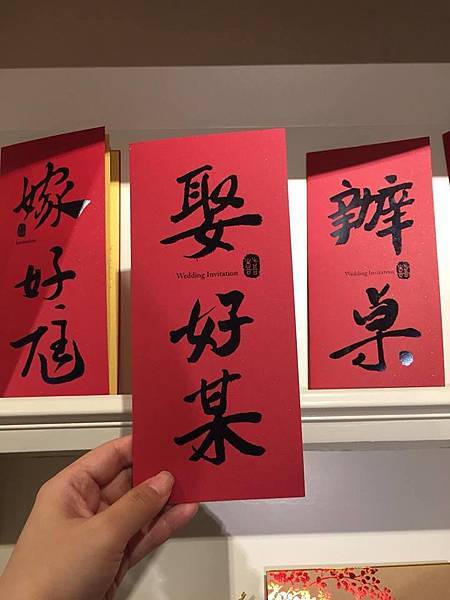 嫁好尪
Invitation
娶好某
Wedding Invitation
辦桌
Wedding Invitation